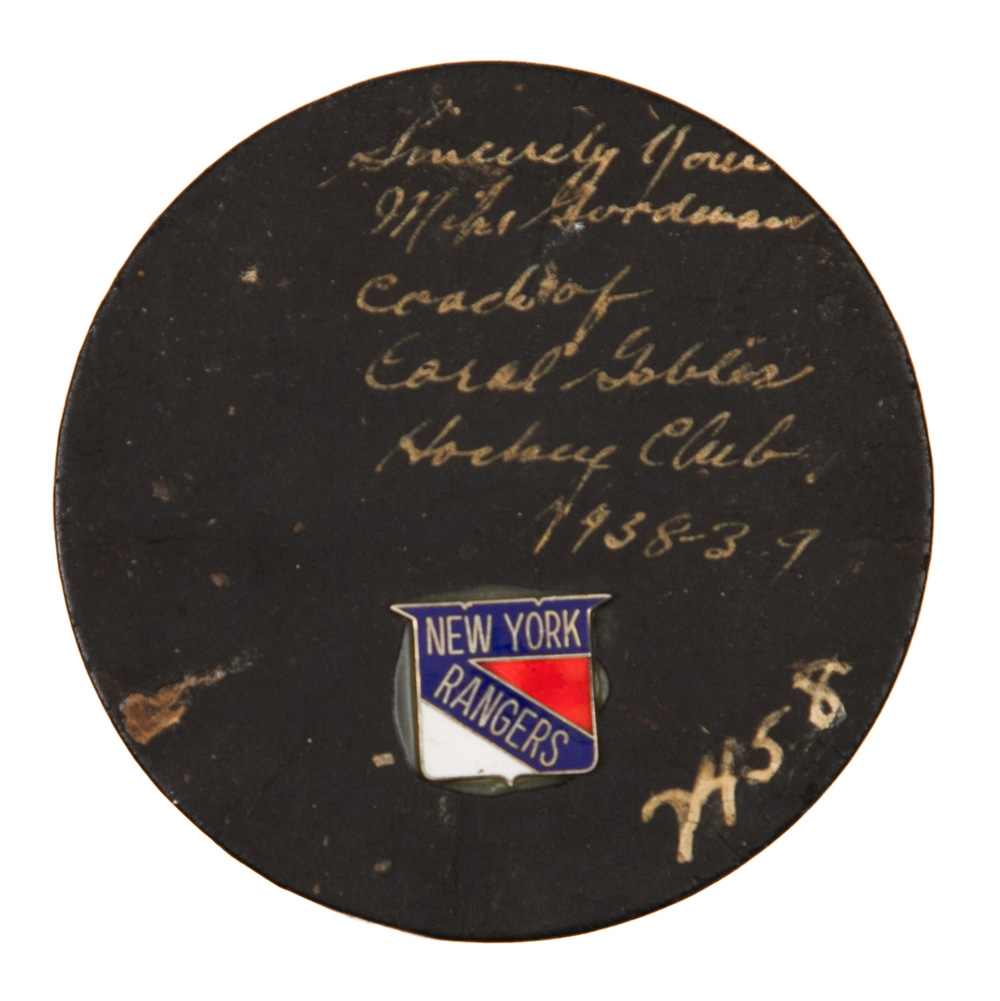 Sincerely Yours
Mike Goodman
Coach of
Coral Gables
Hockey Club,
1938-39
NEW YORK
RANGERS